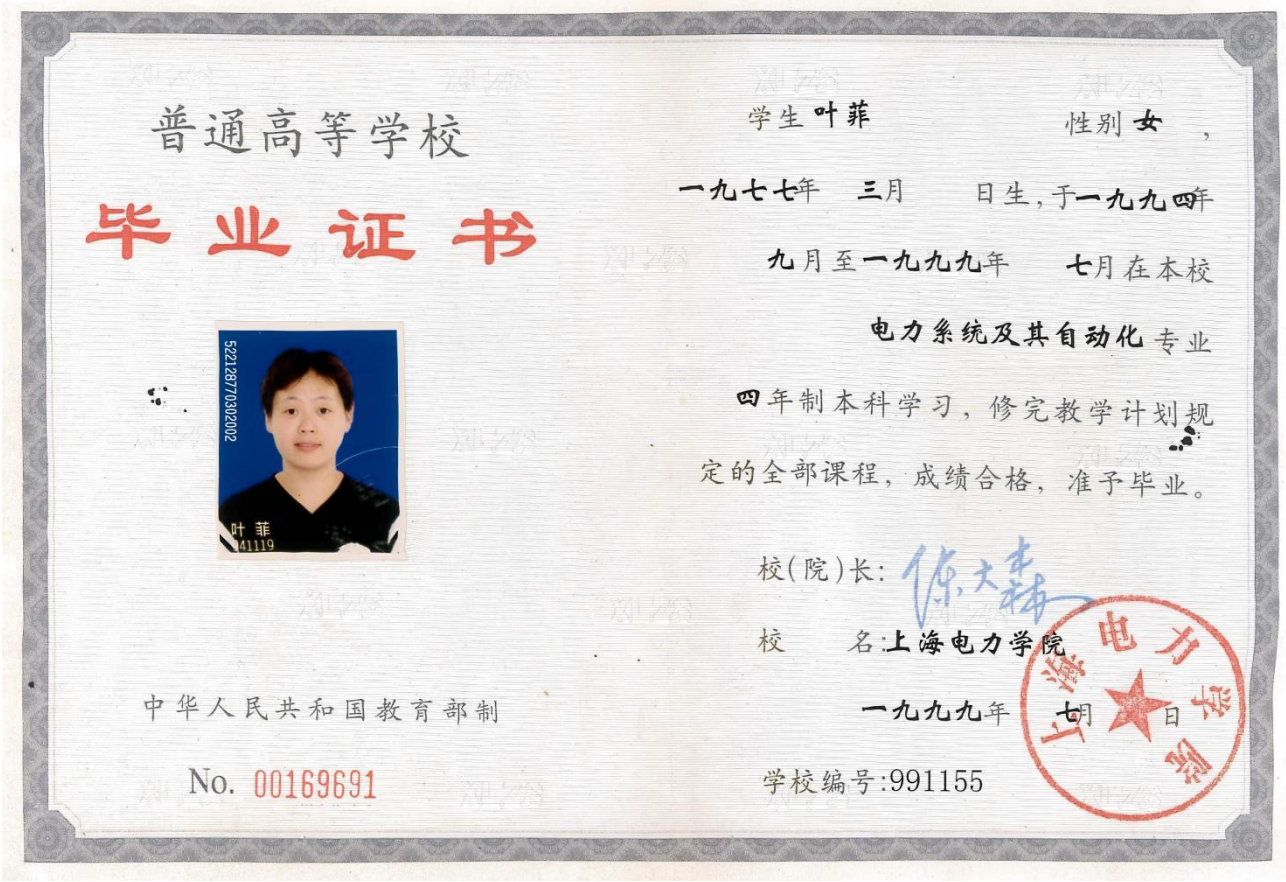 普通高等学校
毕业证书
522128770302002
叶菲
941119
中华人民共和国教育部制
No. 00169691
学生 叶菲 性别 女 ,
一九七七年 三月 日生,于一九九四年
九月至一九九九年 七月在本校
电力系统及其自动化 专业
四年制本科学习, 修完教学计划规
定的全部课程, 成绩合格, 准予毕业。
校(院)长:
校 名:上海电力学院
一九九九年 七月 日
学校编号:991155
上海电力学院